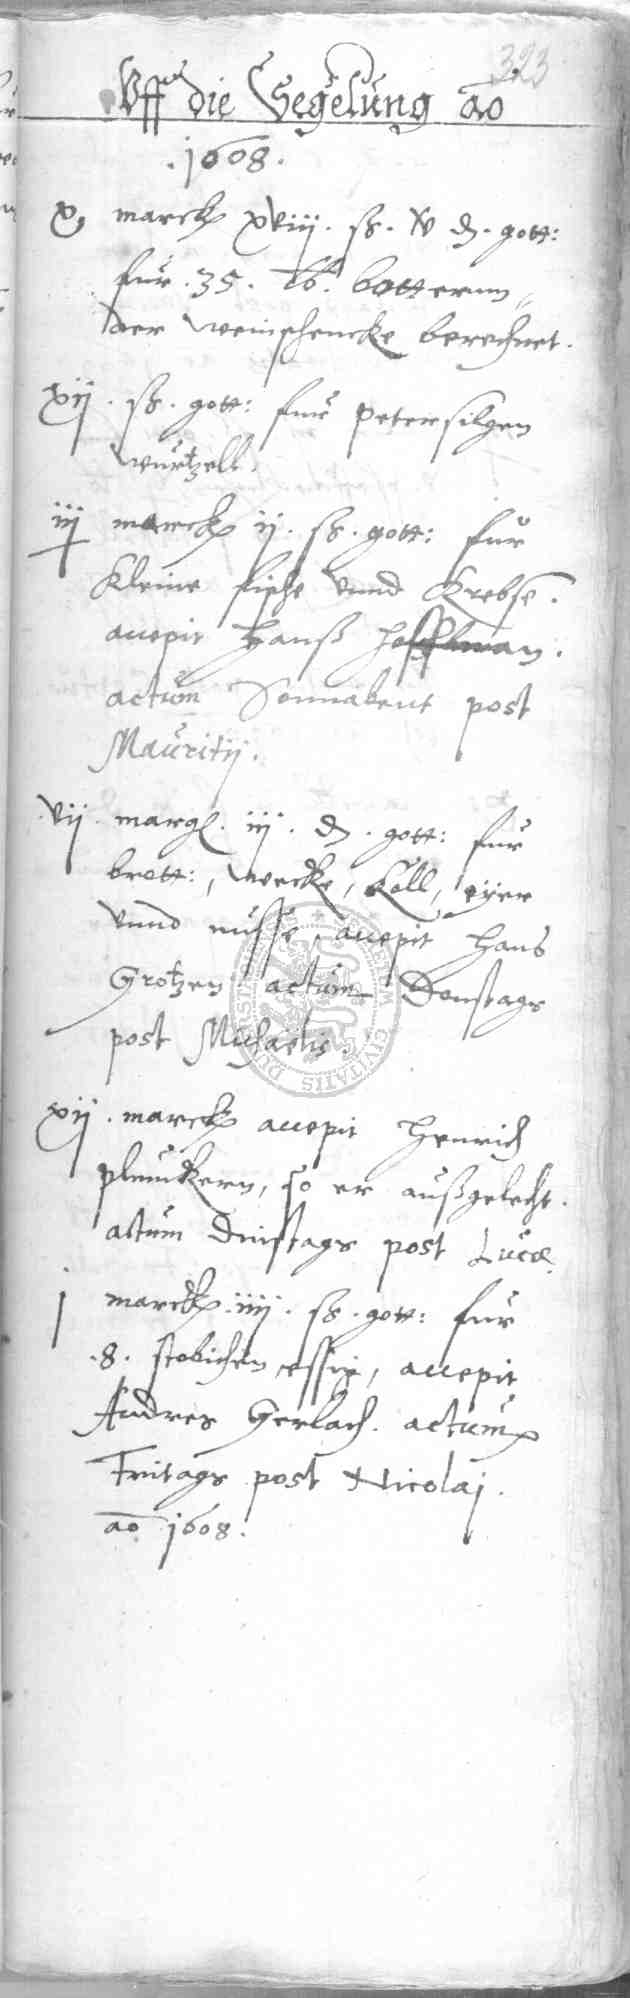 323
Uff die Segelung ao
.1608.
x marck xviii. ß. v d. gott:
fur .35. lb. botterun,,
der weinschencke berechnet.
xij. ß. gott: fur petersilgen
wurtzell.
iij marck ij. ß. gott: fur
Kleine fische unnd Krebse.
accepit Hanß Hoffman.
actum Sonnabent post
Mauritij.
vij. margk. iij. d. gott: fur
brott:, wecke, Koll, eyer
unnd nusse, accepit Hans
Grotzen actum Donstags
post Michaelis.
xij. marck accepit Henrich
pleuckern, so er außgelecht.
actum Dinstags post Lucæ.
j marck iiij. ß. gott: fur
.8. stobichen essig, accepit
Andres Gerlach. actum
Fritags post Nicolaj.
ao 1608.
CIVITATIS